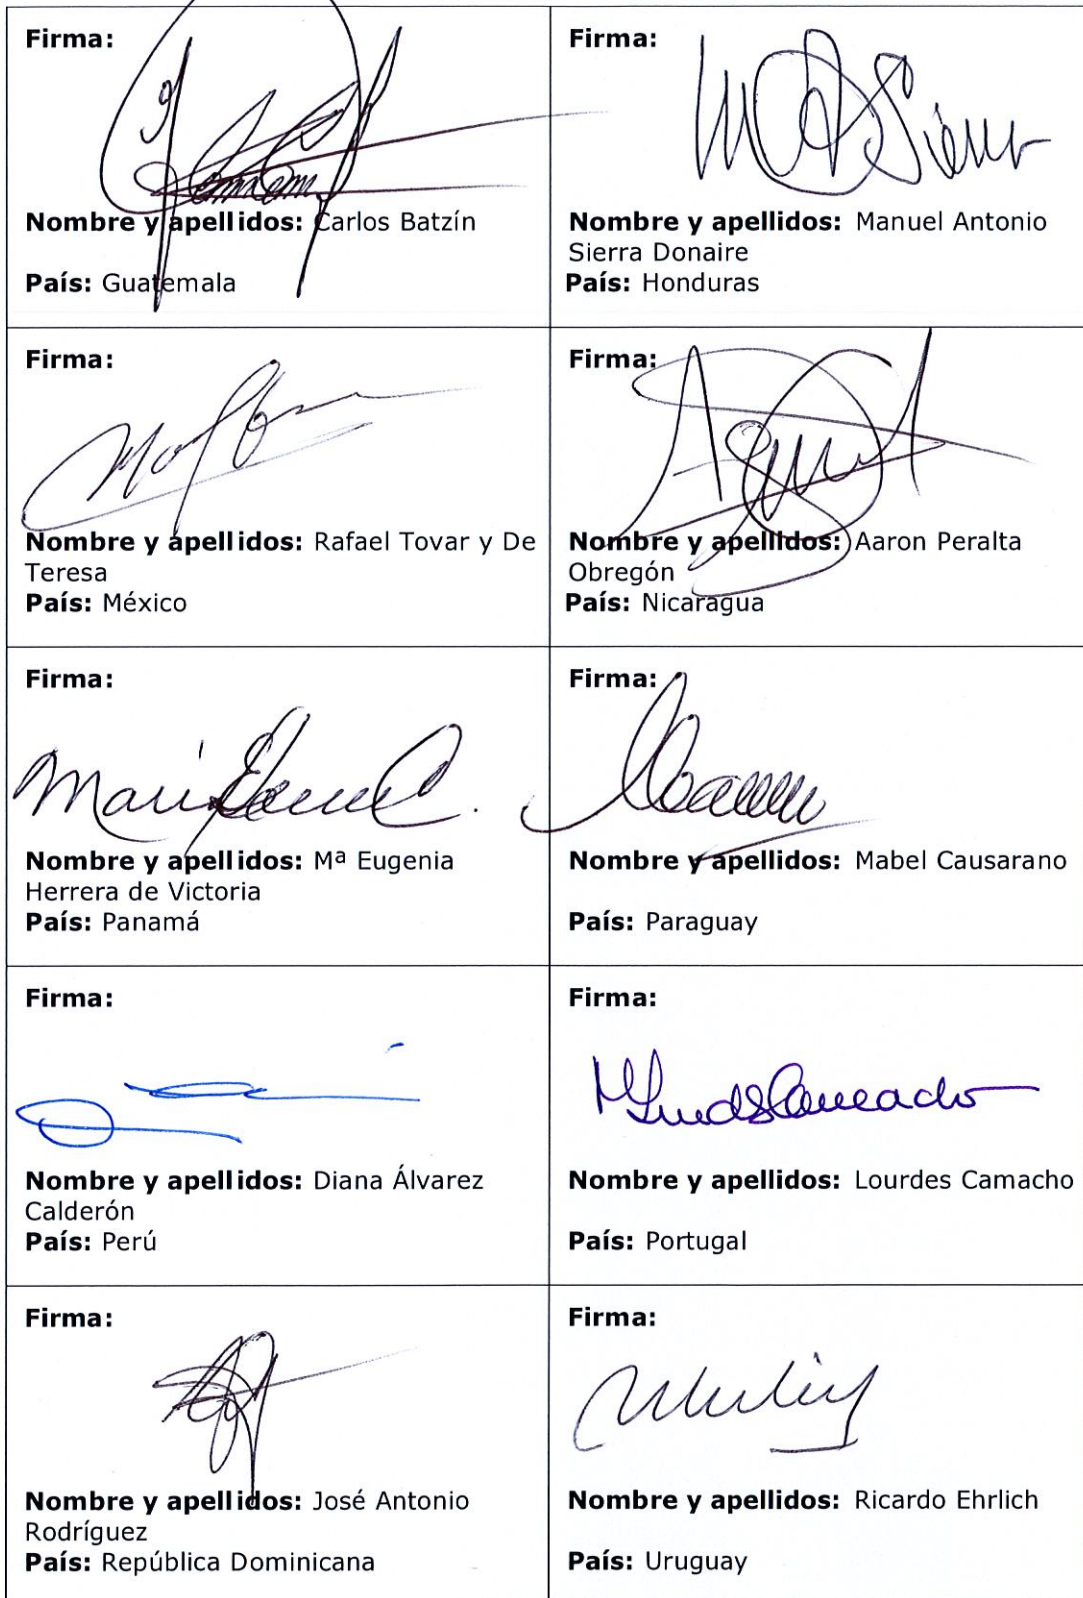 Firma:
Nombre y apellidos: Carlos Batzín
País: Guatemala
Firma:
Sierra
Nombre y apellidos: Manuel Antonio
Sierra Donaire
País: Honduras
Firma:
Nombre y apellidos: Rafael Tovar y De
Teresa
País: México
Firma:
Nombre y apellidos: Aaron Peralta
Obregón
País: Nicaragua
Firma:
Nombre y apellidos: Mª Eugenia
Herrera de Victoria
País: Panamá
Firma:
Nombre y apellidos: Mabel Causarano
País: Paraguay
Firma:
Nombre y apellidos: Diana Álvarez
Calderón
País: Perú
Firma:
Nombre y apellidos: Lourdes Camacho
País: Portugal
Firma:
Nombre y apellidos: José Antonio
Rodríguez
País: República Dominicana
Firma:
Nombre y apellidos: Ricardo Ehrlich
País: Uruguay